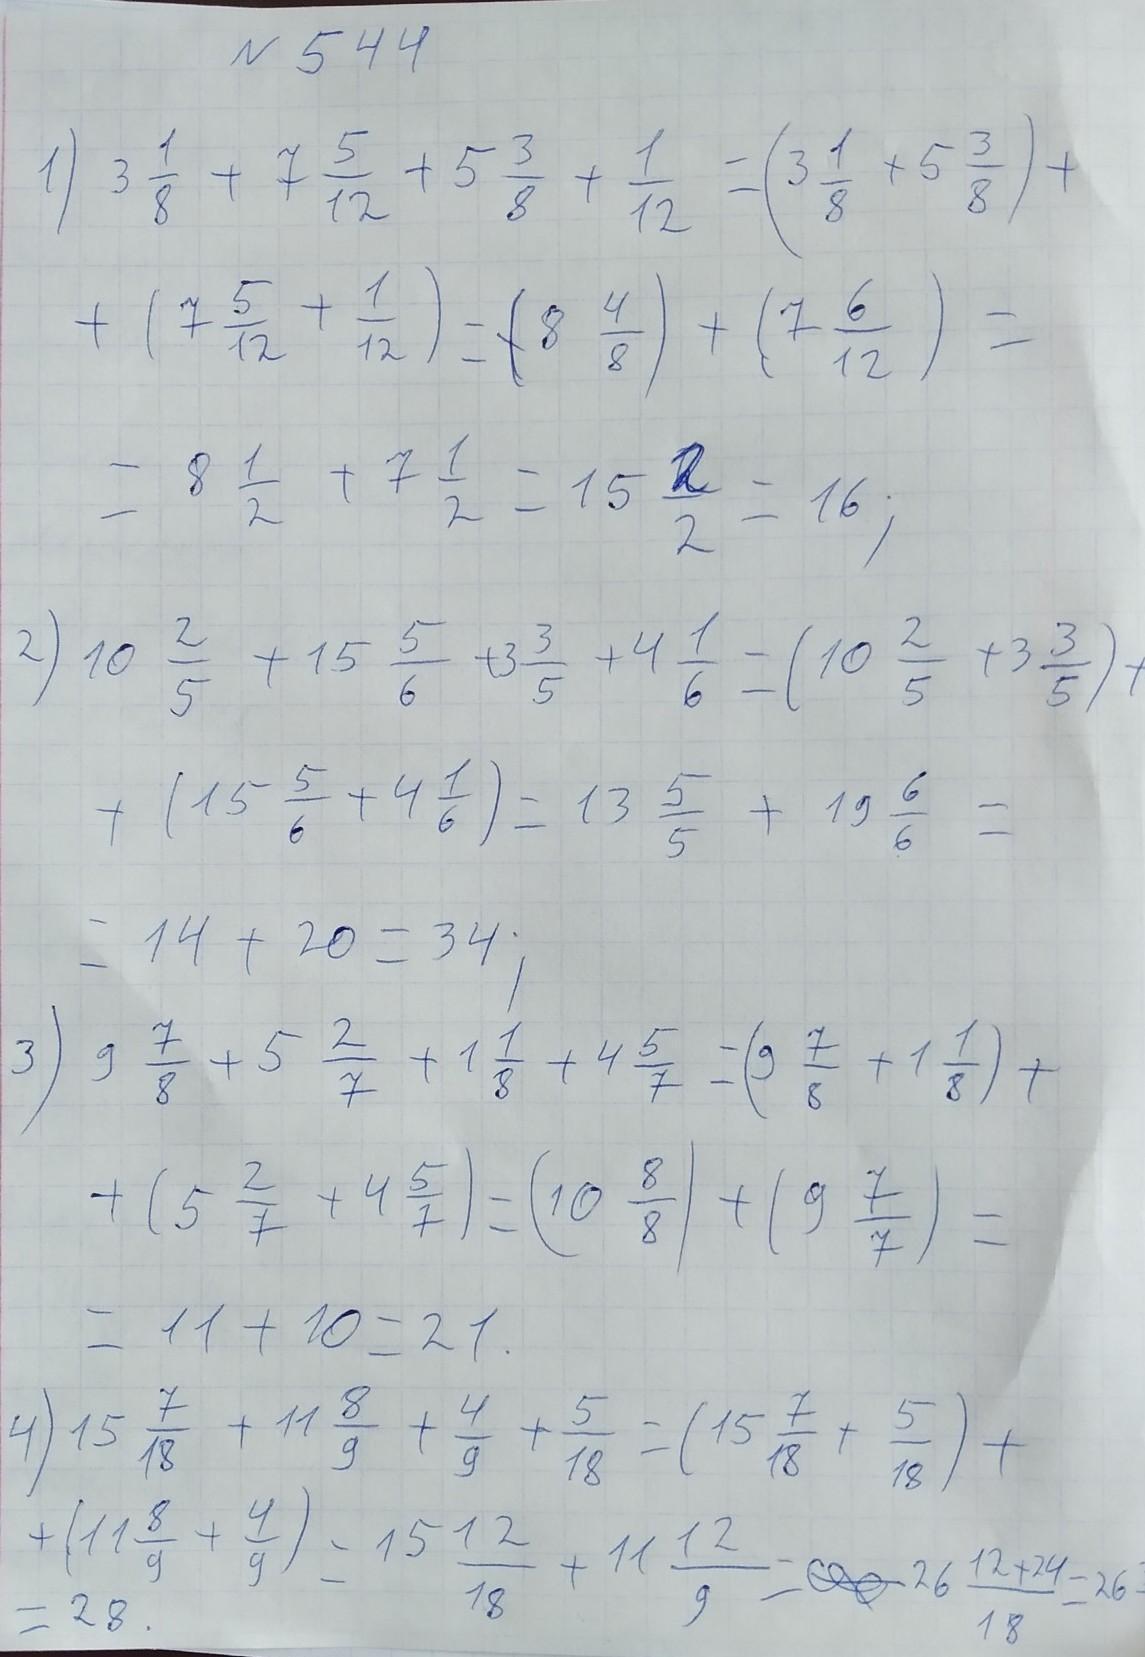 № 544
1) 3 1/8 + 7 5/12 + 5 3/8 + 1/12 = (3 1/8 + 5 3/8) +
+ (7 5/12 + 1/12) = (8 4/8) + (7 6/12) =
= 8 1/2 + 7 1/2 = 15 2/2 = 16;
2) 10 2/5 + 15 5/6 + 3 3/5 + 4 1/6 = (10 2/5 + 3 3/5) +
+ (15 5/6 + 4 1/6) = 13 5/5 + 19 6/6 =
= 14 + 20 = 34;
3) 9 7/8 + 5 2/7 + 1 1/8 + 4 5/7 = (9 7/8 + 1 1/8) +
+ (5 2/7 + 4 5/7) = (10 8/8) + (9 7/7) =
= 11 + 10 = 21.
4) 15 7/18 + 11 8/9 + 4/9 + 5/18 = (15 7/18 + 5/18) +
+ (11 8/9 + 4/9) = 15 12/18 + 11 12/9 = 26 12+24/18 = 26
= 28.